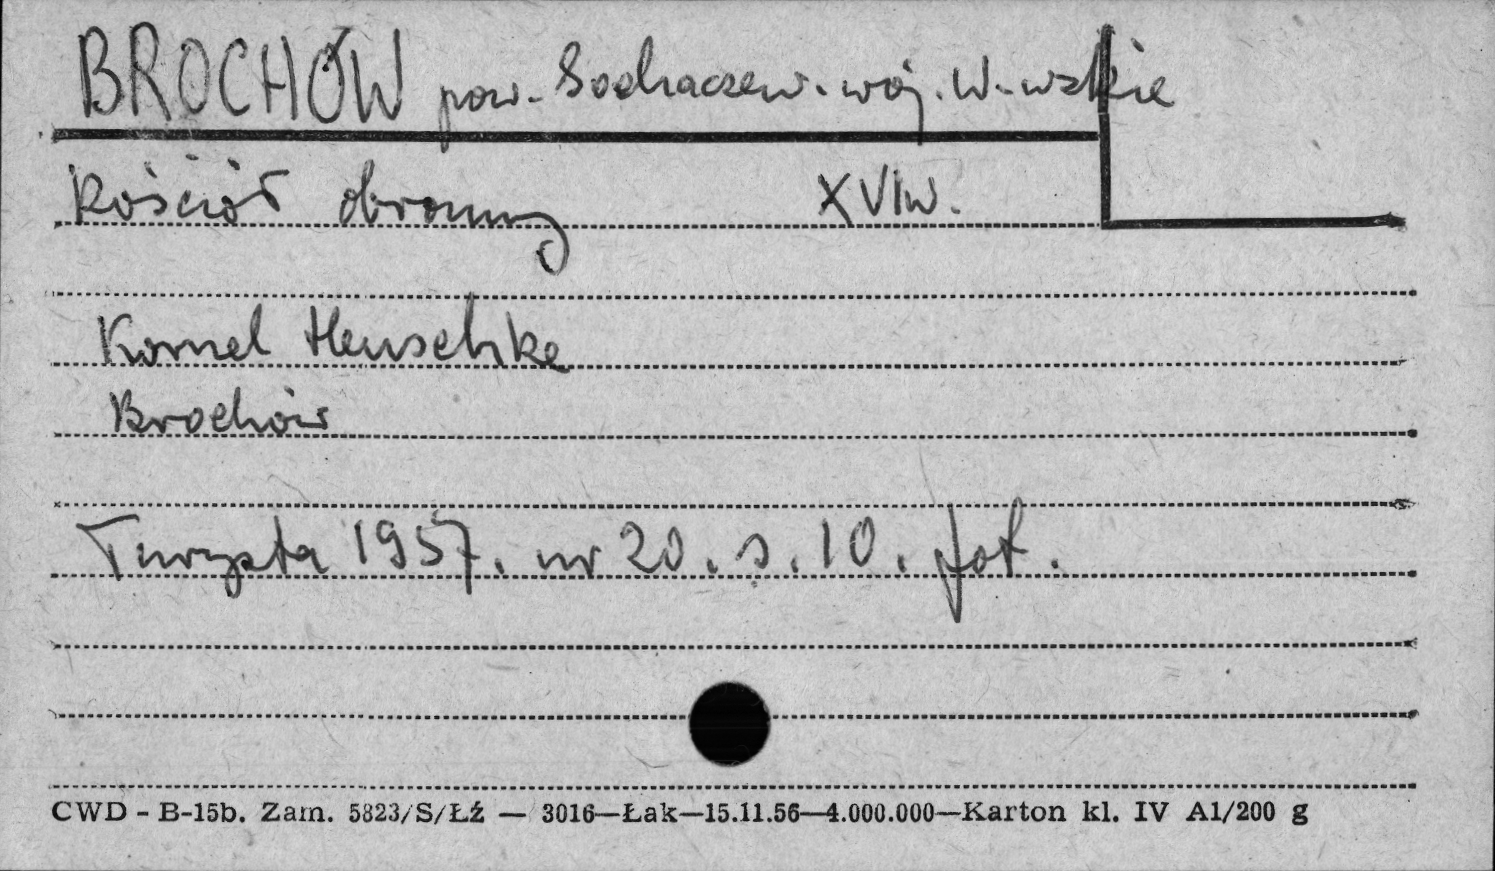 BROCHÓW pow. Sochaczew. woj. W-wskie
Kościół obronny XVIw.
Kornel Henschke
Brochów
Turysta 1957. nr 20. s. 10. fot.
CWD - B-15b. Zam. 5823/S/ŁŹ — 3016—Łak—15.11.56—4.000.000—Karton kl. IV A1/200 g